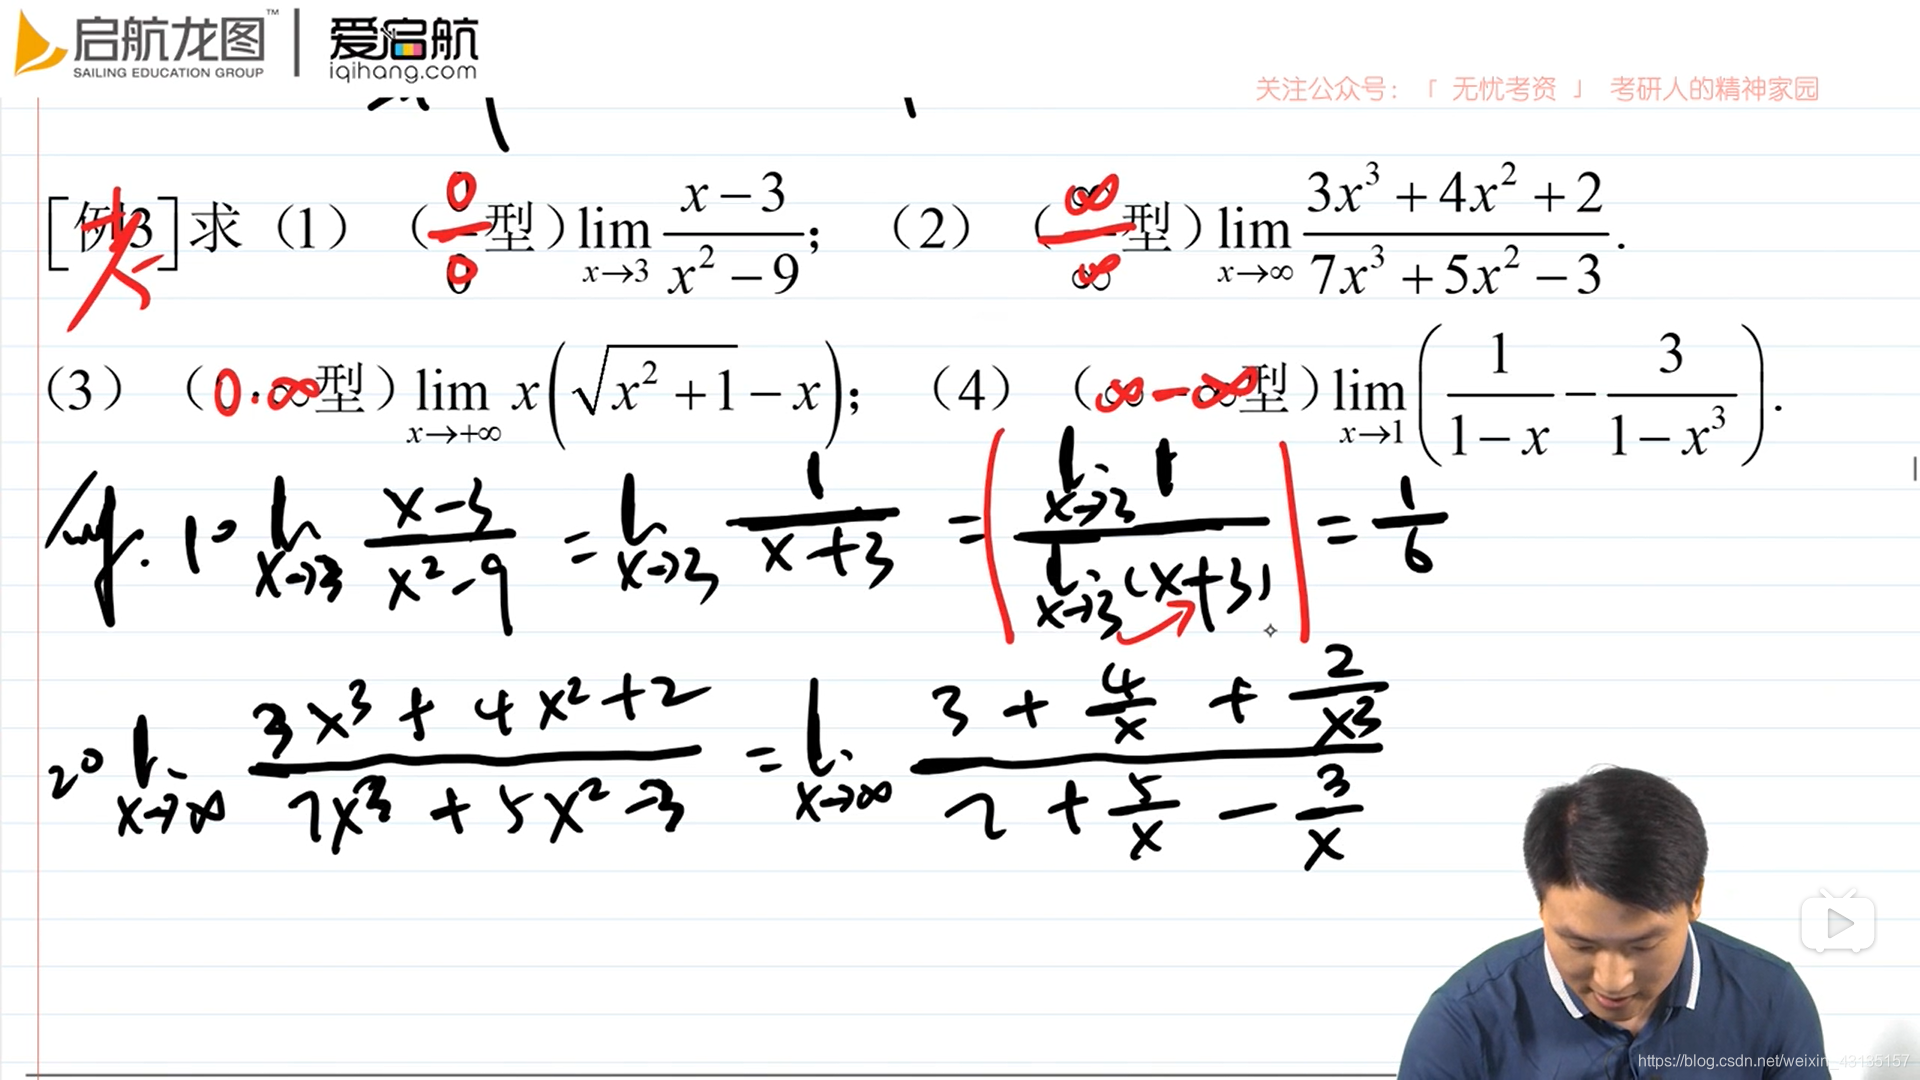 启航龙图™ | 爱启航
SAILING EDUCATION GROUP iqihang.com
关注公众号：「 无忧考资 」 考研人的精神家园
[例3]求（1）（0/0型）lim x→3 (x−3)/(x²−9)；（2）（∞/∞型）lim x→∞ (3x³+4x²+2)/(7x³+5x²−3).
（3）（0·∞型）lim x→+∞ x(√(x²+1)−x)；（4）（∞−∞型）lim x→1 (1/(1−x) − 3/(1−x³)).
1° lim x→3 (x−3)/(x²−9) = lim x→3 1/(x+3) = (lim x→3 1)/(lim x→3 (x+3)) = 1/6
2° lim x→∞ (3x³+4x²+2)/(7x³+5x²−3) = lim x→∞ (3+4/x+2/x³)/(7+5/x−3/x
https://blog.csdn.net/weixin_43135157